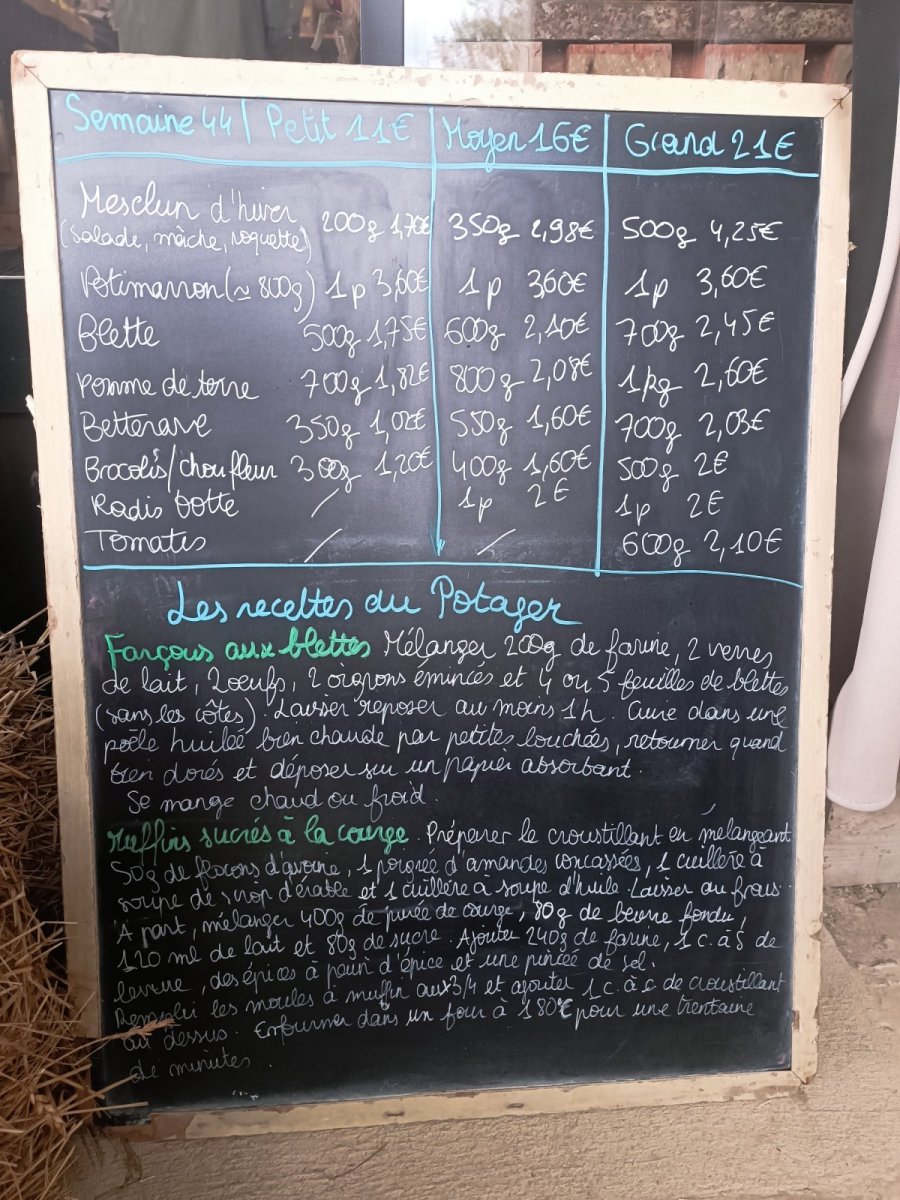 Semaine 44 | Petit 11€ Moyen 16€ Grand 21€
Mesclun d'hiver 200g 1,70€ 350g 2,98€ 500g 4,25€
(salade, mâche, roquette)
Potimarron (≃ 800g) 1p 3,60€ 1p 3,60€ 1p 3,60€
Blette 500g 1,75€ 600g 2,10€ 700g 2,45€
Pomme de terre 700g 1,82€ 800g 2,08€ 1kg 2,60€
Betterave 350g 1,02€ 550g 1,60€ 700g 2,03€
Brocolis/chou fleur 300g 1,20€ 400g 1,60€ 500g 2€
Radis botte / 1p 2€ 1p 2€
Tomates / / 600g 2,10€
Les recettes du Potager
Farçous aux blettes Mélanger 200g de farine, 2 verres
de lait, 2 oeufs, 2 oignons émincés et 4 ou 5 feuilles de blettes
(sans les côtes). Laisser reposer au moins 1h. Cuire dans une
poêle huilée bien chaude par petites louchées, retourner quand
bien dorés et déposer sur un papier absorbant.
Se mange chaud ou froid.
Muffins sucrés à la courge. Préparer le croustillant en mélangeant
50g de flocons d'avoine, 1 poignée d'amandes concassées, 1 cuillère à
soupe de sirop d'érable et 1 cuillère à soupe d'huile. Laisser au frais.
A part, mélanger 400g de purée de courge, 80g de beurre fondu,
120 ml de lait et 80g de sucre. Ajouter 240g de farine, 1 c. à s de
levure, des épices à pain d'épice et une pincée de sel.
Remplir les moules à muffin aux 3/4 et ajouter 1 c. à c. de croustillant
au dessus. Enfourner dans un four à 180°C pour une trentaine
de minutes